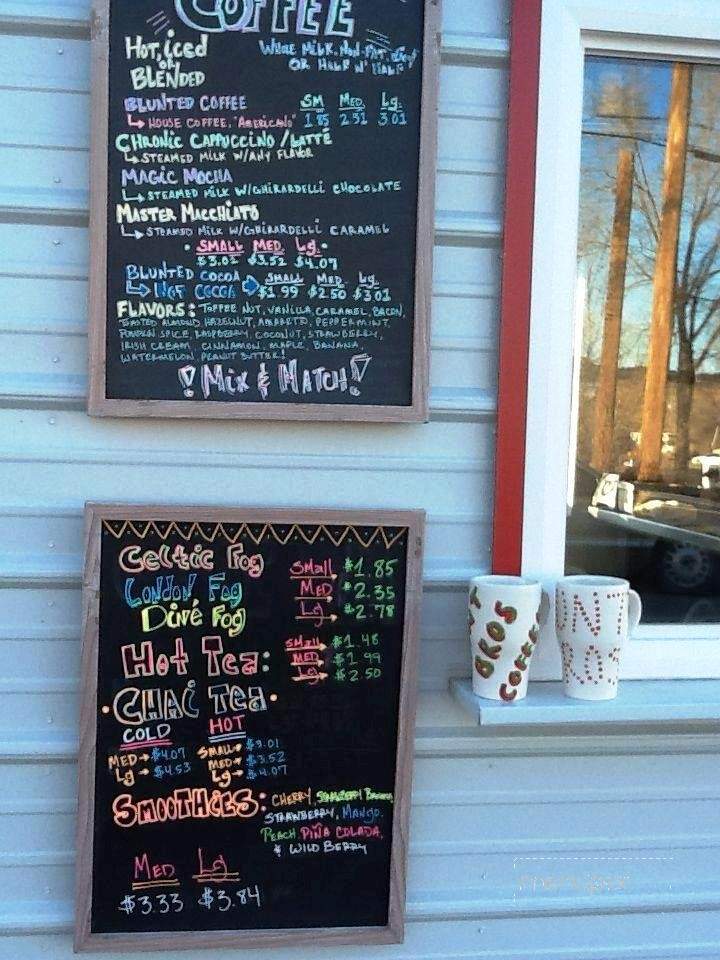 COFFEE
HOT, iced
or
BLENDED
WHOLE MILK, NON-FAT,
OR HALF N' HALF
BLUNTED COFFEE SM MED. Lg.
HOUSE COFFEE, "AMERICANO" 1.85 2.31 3.01
CHRONIC CAPPUCCINO / LATTÉ
STEAMED MILK W/ANY FLAVOR
MAGIC MOCHA
STEAMED MILK W/GHIRARDELLI CHOCOLATE
MASTER MACCHIATO
STEAMED MILK W/GHIRARDELLI CARAMEL
SMALL MED. Lg.
$3.01 $3.52 $4.07
BLUNTED COCOA SMALL MED. Lg.
HOT COCOA $1.99 $2.50 $3.01
FLAVORS: TOFFEE NUT, VANILLA, CARAMEL, BACON,
TOASTED ALMOND, HAZELNUT, AMARETTO, PEPPERMINT,
PUMPKIN SPICE, RASPBERRY, COCONUT, STRAWBERRY,
IRISH CREAM, CINNAMON, MAPLE, BANANA,
WATERMELON, PEANUT BUTTER!
! MIX & MATCH!
Celtic Fog
London Fog
Dirvé Fog
Small $1.85
MED $2.35
Lg $2.78
Hot Tea:
Small $1.48
MED $1.99
Lg $2.50
CHAI Tea
COLD HOT
MED $4.07
Lg $4.53
SMALL $3.01
MED $3.52
Lg $4.07
SMOOTHIES: CHERRY, STRAWBERRY BANANA,
STRAWBERRY, MANGO,
PEACH, PIÑA COLADA,
& WILD BERRY
MED Lg
$3.33 $3.84
NT
BROS
COFFEE
UNT
ROS